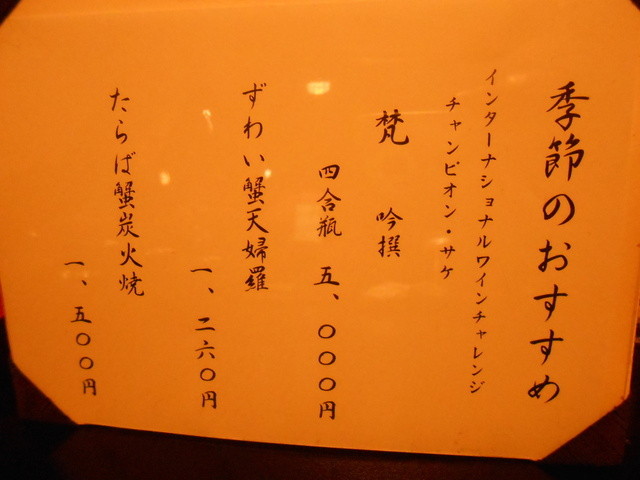 季節のおすすめ
インターナショナルワインチャレンジ
チャンピオン・サケ
梵 吟撰
四合瓶 五、〇〇〇円
ずわい蟹天婦羅
一、二六〇円
たらば蟹炭火焼
一、五〇〇円